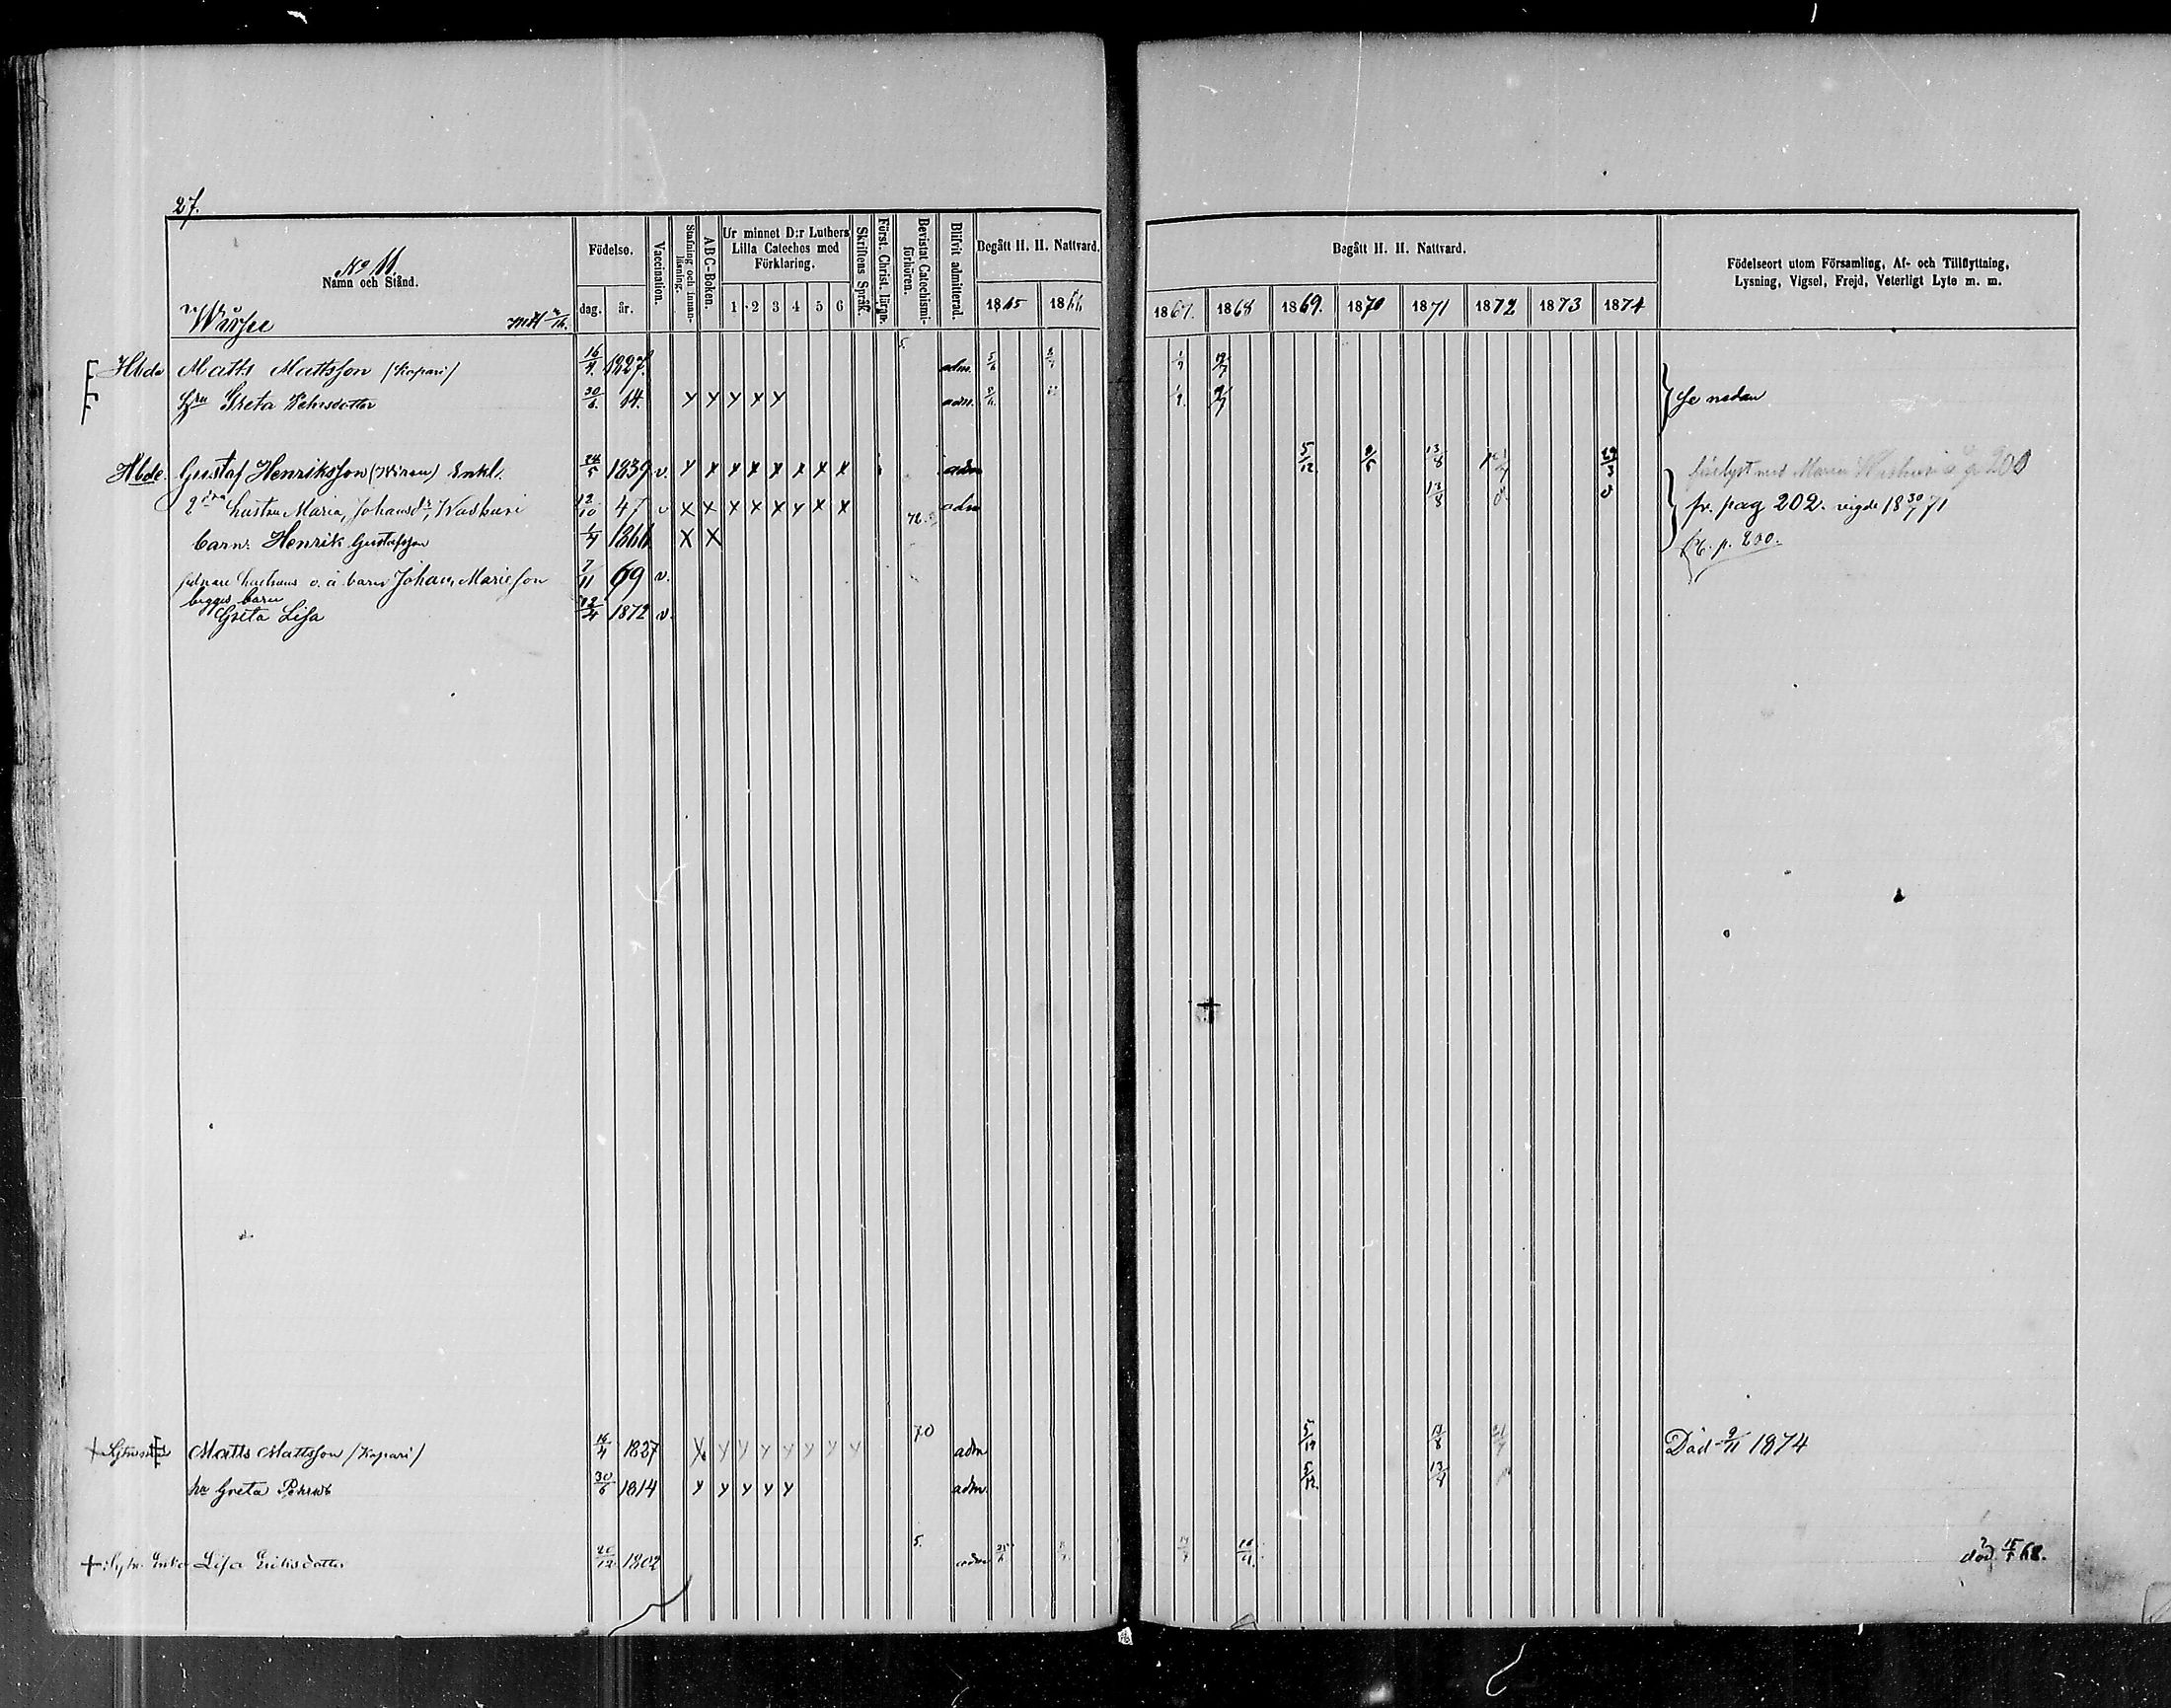 27.
No 11.
Namn och Stånd.
Födelse.
dag. år.
Vaccination.
Stafning och Innan-läsning.
ABC-Boken.
Ur minnet D:r Luthers Lilla Cateches med Förklaring.
1 2 3 4 5 6
Skriftens Språk.
Först. Christ. lären.
Bevistat Catechismi-förhören.
Blifvit admitterad.
Begått H. H. Nattvard.
1865 1866
Begått H. H. Nattvard.
1867. 1868 1869. 1870 1871 1872 1873 1874
Födelseort utom Församling, Af- och Tillflyttning,
Lysning, Vigsel, Frejd, Veterligt Lyte m. m.
Hbde Matts Mattsson (Kopari) 16/4. 1827. adm. 5/6
Greta Pehrsdotter 30/6. 14. x x x x x adm. Se nedan
Hbde Gustaf Henriksson Enkl. 24/5 1839 v. x x x x x x x x adm 5/12. 13/8 29/3
hustru Maria Johansdr 12/10 47 v x x x x x x x x adm 13/8 fr. pag 202. vigde 18 30/7 71
barn. Henrik Gustafsson 1/4 1866 x x p. 200.
o. ä barn Johan Mariesson 7/11 69 v.
begges barn
Greta Lisa 12/4 1872 v.
70
Matts Mattsson (Kopari) 16/4 1827 x x x x x x x x adm 5/12 13/8 Död 9/11 1874
hu Greta Pehrsd 30/6 1814 x x x x x adm. 5/12. 13/8
5.
+ Lisa Eriksdotter 20/12 1802 adm död 15/5 68.